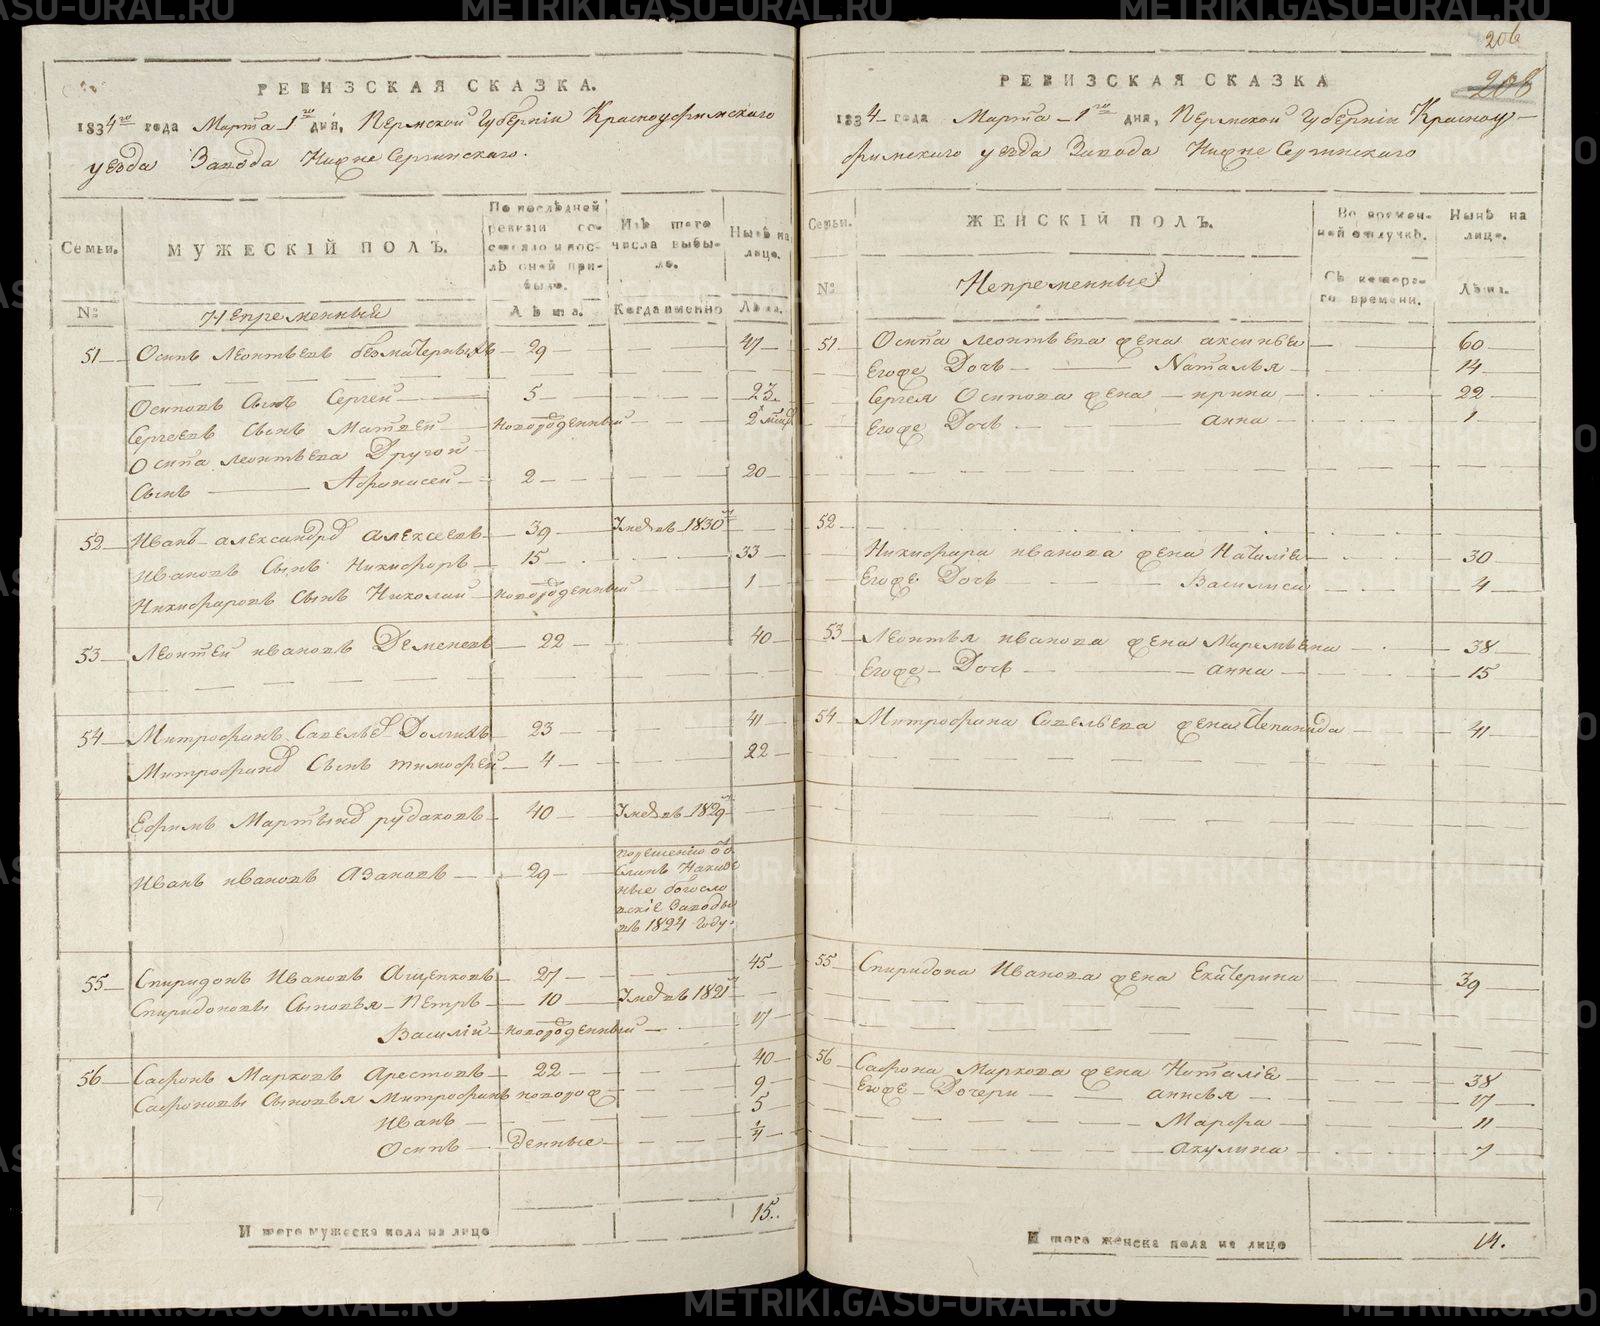 РЕВИЗСКАЯ СКАЗКА.
1834го года Марта 1го дня, Пермской Губернїи Красноуфимскаго
уезда Завода Нижне Сергинскаго.
Семьи.
МУЖЕСКІЙ ПОЛЪ.
По послѣдней ревизіи состояло и послѣ оной прибыло.
Изъ того числа выбыло.
Нынѣ на лицо.
№
Непременный
Лѣта.
Когда именно
Лѣта.
51 Осипъ Леонтьевъ безматерныхъ 29 47
Осиповъ Сынъ Сергей 5 23
Сергеевъ Сынъ Матвей новорожденный 2
Осипа Леонтьева Другой
Сынъ Афанасей 2 20
52 Иванъ александръ алексеевъ 39 Умеръ въ 1830м
Ивановъ Сынъ Никифоръ 15 33
Никифаровъ Сынъ Николай новорожденный 1
53 Леонтей ивановъ Деменевъ 22 40
54 Митрофанъ Савельев Долгихъ 23 41
Митрофанов Сынъ тимофей 4 22
Ефимъ Мартынов рудаковъ 40 Умеръ въ 1829м
Иванъ ивановъ Азановъ 29
богосло
вскіе Заводы
въ 1824 году.
55 Спиридонъ Ивановъ Ащепковъ 27 45
Спиридоновы Сыновья Петръ 10 Умеръ въ 1821м
Василій новорожденный 17
56 Сафонъ Марковъ Арестовъ 22 40
Сафоновы Сыновья Митрофанъ новорож 9
Иванъ 5
Осипъ денные 1/4
И того мужеска пола на лицо 15.
206
208
РЕВИЗСКАЯ СКАЗКА
1834 года Марта 1го дня, Пермской Губернїи Красноу-
фимскаго уезда Завода Нижне Сергинскаго
Семьи.
ЖЕНСКІЙ ПОЛЪ.
Во временной отлучкѣ.
Нынѣ на лицо.
№
Непременные
Съ котораго времени.
Лѣта.
51 Осипа Леонтьева жена аксинья 60
Егоже Дочь Наталья 14
Сергея Осипова жена ирина 22
Егоже Дочь анна 1
52
Никифара иванова жена Наталія 30
Егоже Дочь Василиса 4
53 Леонтья иванова жена Маремьена 38
Егоже Дочь анна 15
54 Митрофана Савельева жена Степанида 41
55 Спиридона Иванова жена Екатерина 39
56 Сафона Маркова жена Наталія 38
Егоже Дочери анисья 17
Марфа 11
акулина 7
И того женска пола на лицо 14.
METRIKI.GASU-URAL.RU